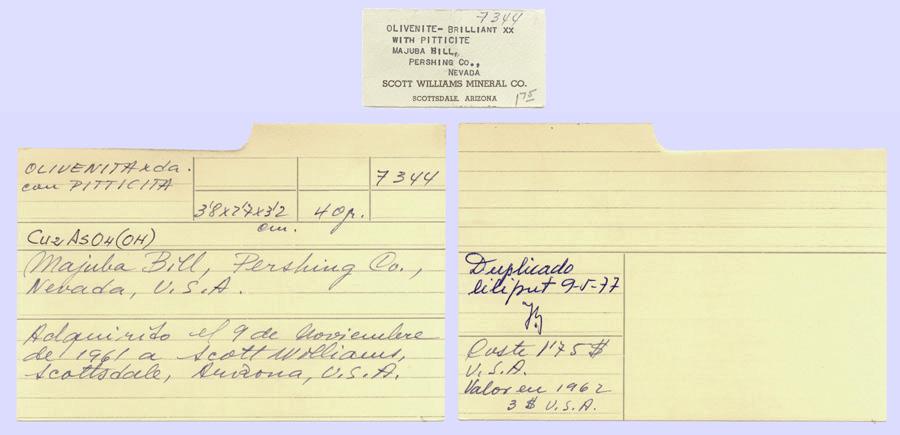 7344
OLIVENITE- BRILLIANT XX
WITH PITTICITE
MAJUBA HILL,
PERSHING CO.,
NEVADA
SCOTT WILLIAMS MINERAL CO.
SCOTTSDALE, ARIZONA
1.75
OLIVENITA xda.
con PITTICITA
7344
3'8x2'7x3'2
cm.
40 gr.
Cu2AsO4(OH)
Majuba Bill, Pershing Co.,
Nevada, U.S.A.
Adquirito el 9 de Noviembre
de 1961 a Scott Williams,
Scottsdale, Arizona, U.S.A.
Duplicado
liliput 9-5-77
Coste 1'75 $
U.S.A.
Valor en 1962
3 $ U.S.A.